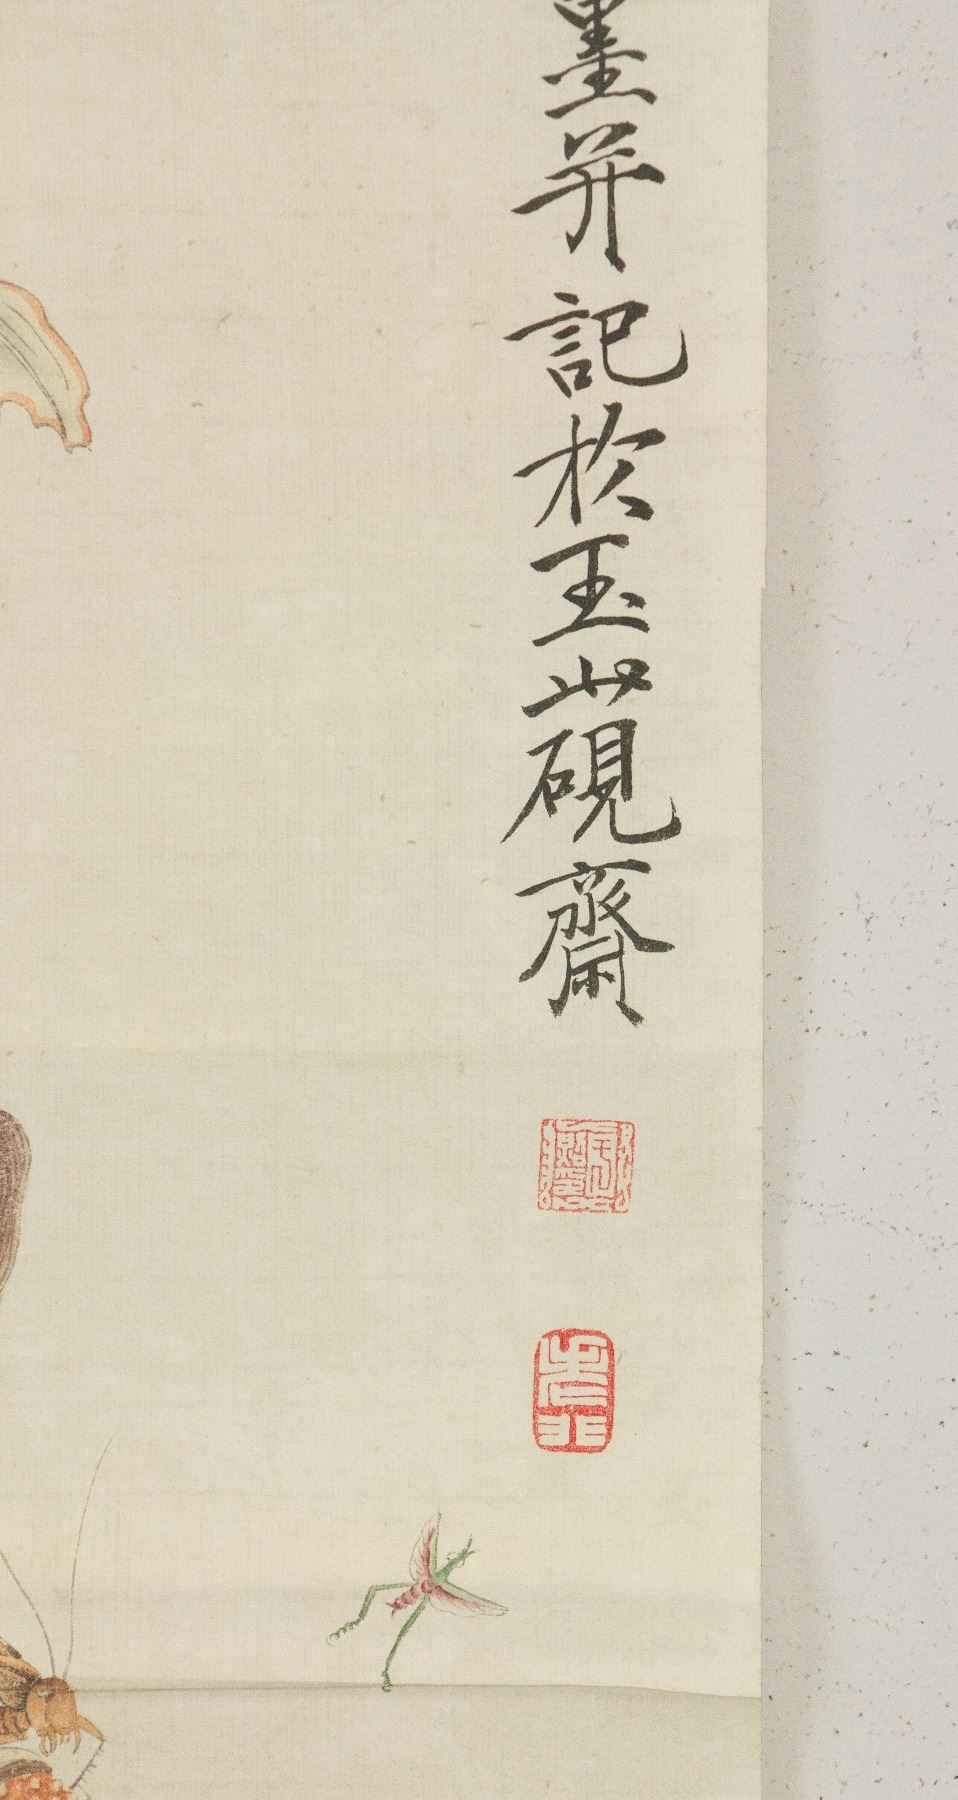 墨并記於玉山硯齋